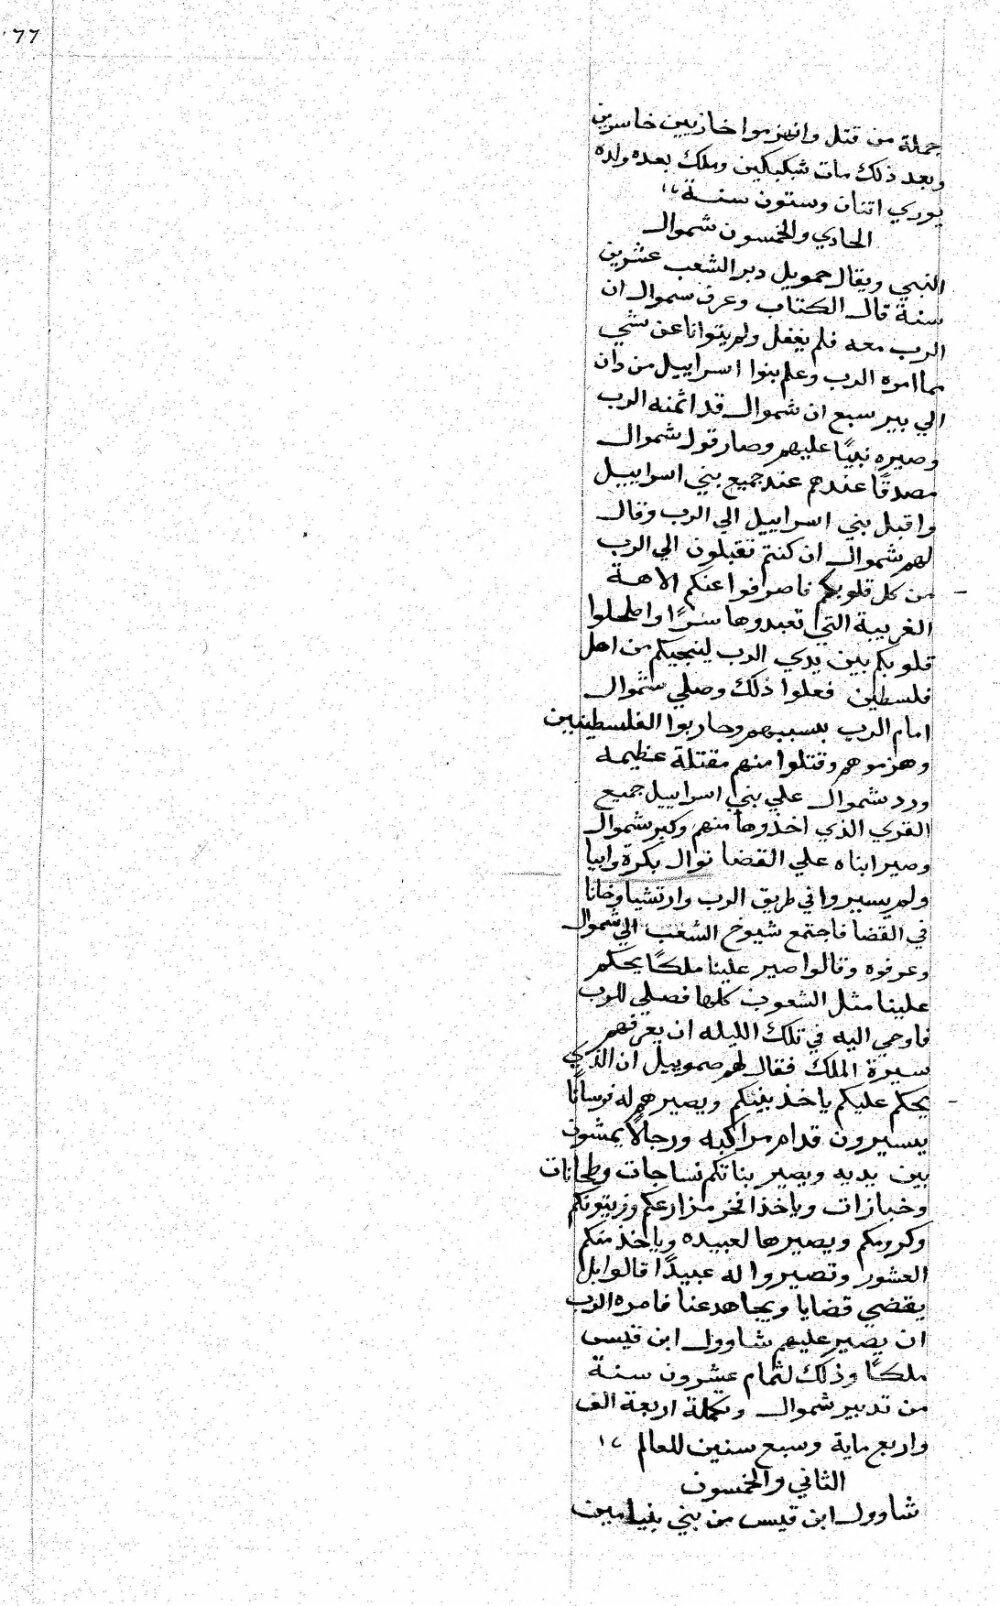 77
جملة من قتل وانهزموا خازيين خاسرين
وبعد ذلك مات شبكبكين وملك بعده ولده
يوري اتنان وستون سنة
الحادي والخمسون شموال
النبي ويقال حمويل دبر الشعب عشرين
سنة قال الكتاب وعرف سموال ان
الرب معه فلم يغفل ولم يتوانا عن شي
مما امره الرب وعلم بنوا اسراييل من دان
الي بير سبع ان شموال قد اثمنه الرب
وصيره نبيًا عليهم وصار قول شموال
مصدقًا عندهم عند جميع بني اسراييل
واقبل بني اسراييل الي الرب وقال
لهم شموال ان كنتم تقبلون الي الرب
من كل قلوبكم فاصرفوا عنكم الاهة
الغريبة التي تعبدوها سرًا واصلحلوا
قلوبكم بين يدي الرب لينجيكم من اهل
فلسطين ففعلوا ذلك وصلي شموال
امام الرب بسببهم وحاربوا الفلسطينيين
وهزموهم وقتلوا منهم مقتلة عظيمه
ورد شموال علي بني اسراييل جميع
القري الذي اخذوها منهم وكبر شموال
وصير ابناه علي القضا نوال بكرة وابيا
ولم يسيروا في طريق الرب وارتشيا وخانا
في القضا فاجتمع شيوخ الشعب الي شموال
وعرفوه وقالوا صير علينا ملكًا يحكم
علينا مثل الشعوب كلها فصلي للرب
فاوحي اليه في تلك الليله ان يعرفهم
سيرة الملك فقال لهم صموييل ان الذي
يحكم عليكم ياخذ بنيكم ويصيرهم له فرسانًا
يسيرون قدام مراكبه ورجالًا يمشون
بين يديه ويصير بناتكم نساجات وطحانات
وخبازات وياخذ افخر مزارعكم وزيتونكم
وكرومكم ويصيرها لعبيده وياخذ منكم
العشور وتصيروا له عبيدًا قالوا بل
يقضي قضايا ويجاهد عنا فامره الرب
ان يصير عليهم شاوول ابن قيس
ملكًا وذلك لتمام عشرون سنة
من تدبير شموال وتكملة اربعة الف
واربع ماية وسبع سنين للعالم
الثاني والخمسون
شاوول ابن قيس من بني بنيامين